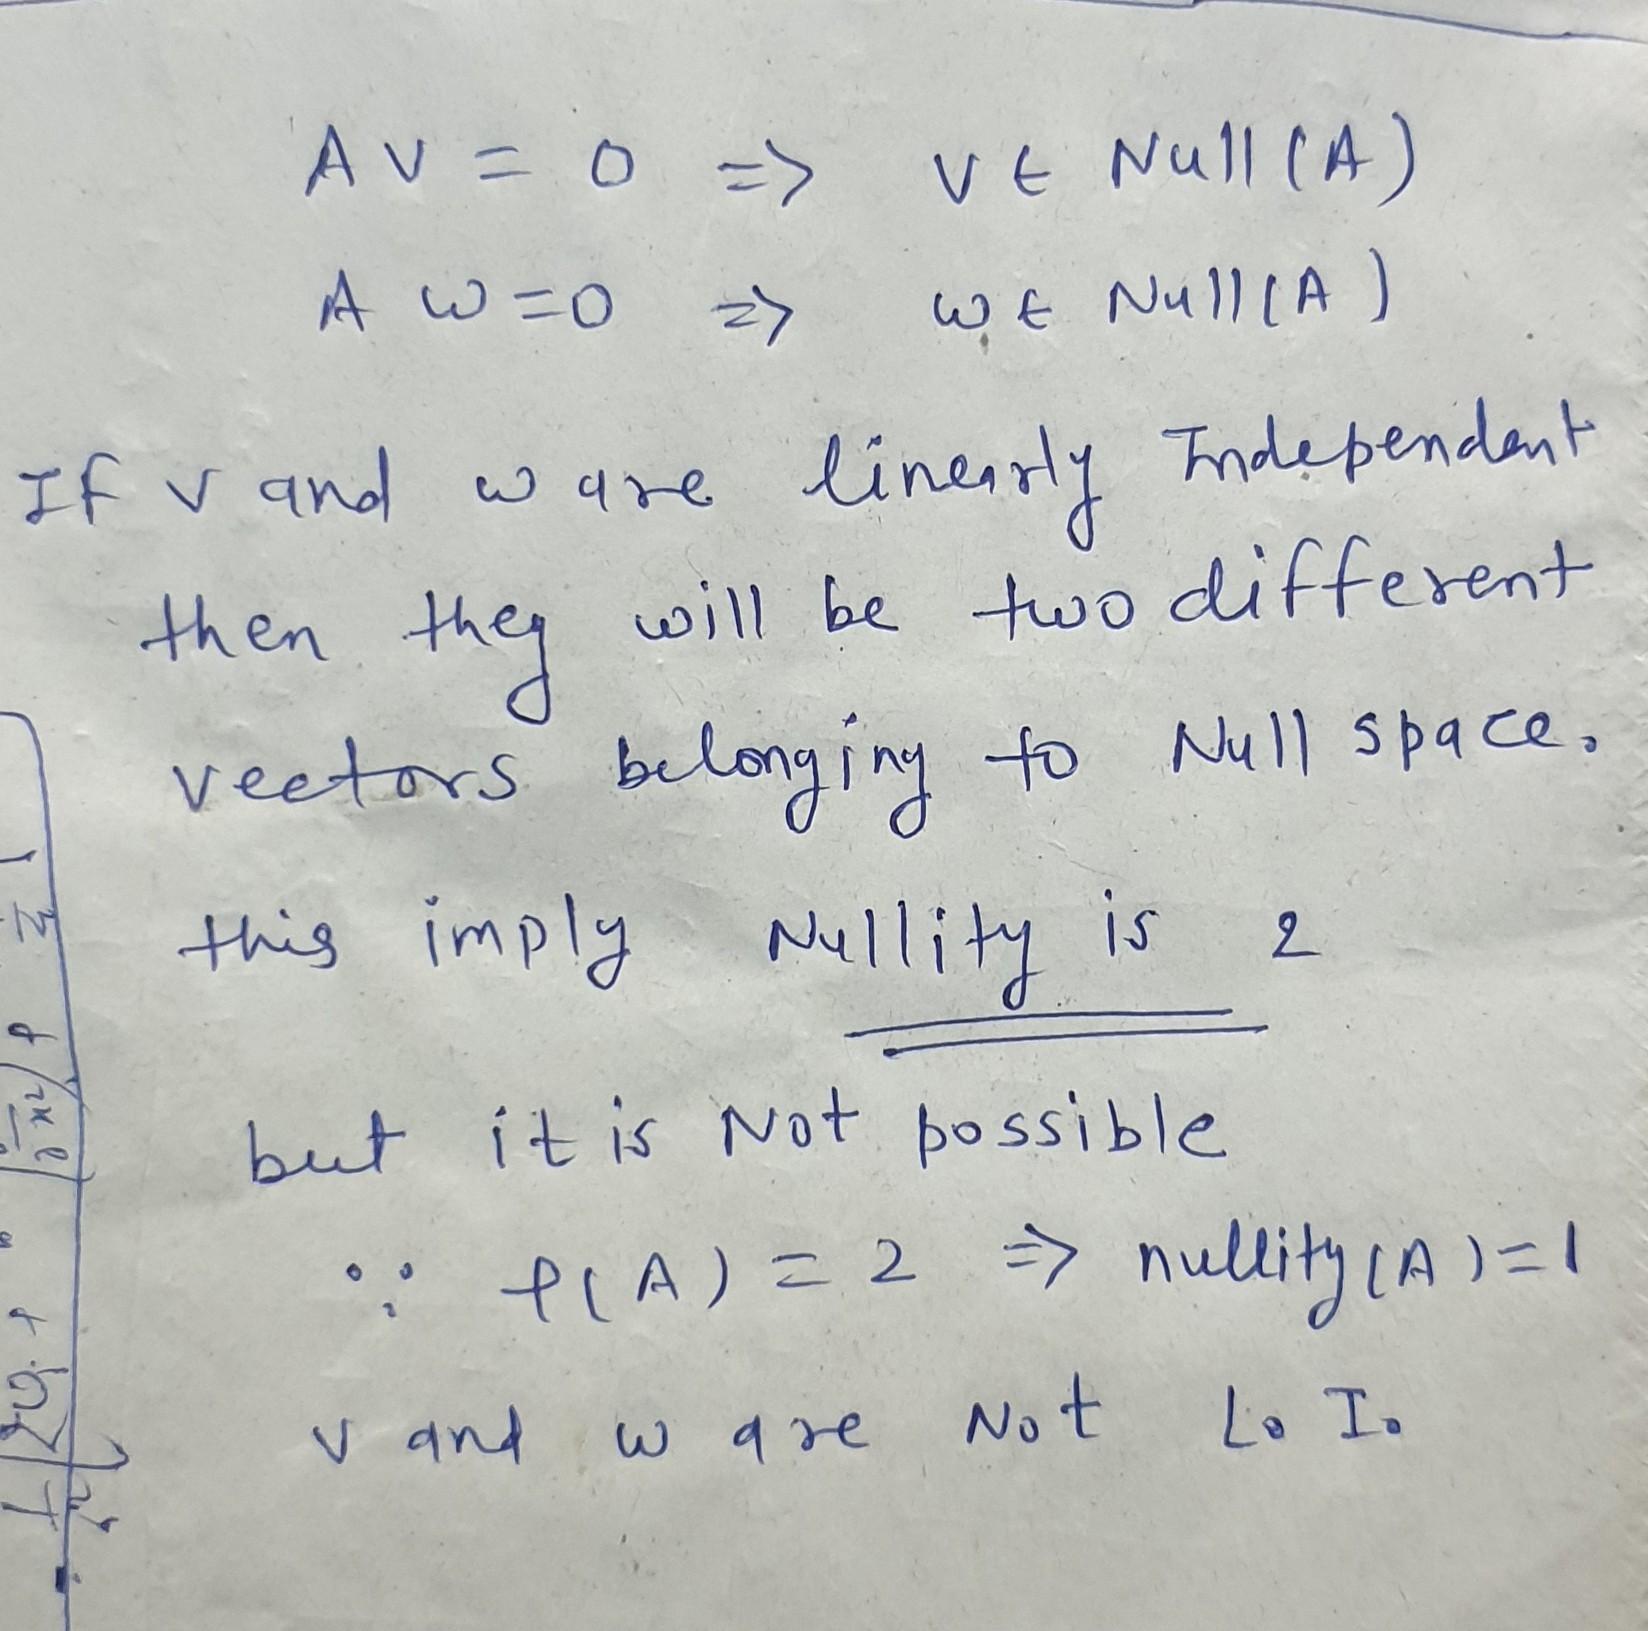 A V = 0 => V ∈ Null(A)
A w = 0 => w ∈ Null(A)
If v and w are linearly Independent
then they will be two different
vectors belonging to Null space.
this imply Nullity is 2
but it is Not possible
∵ ρ(A) = 2 => nullity(A) = 1
v and w are Not L. I.